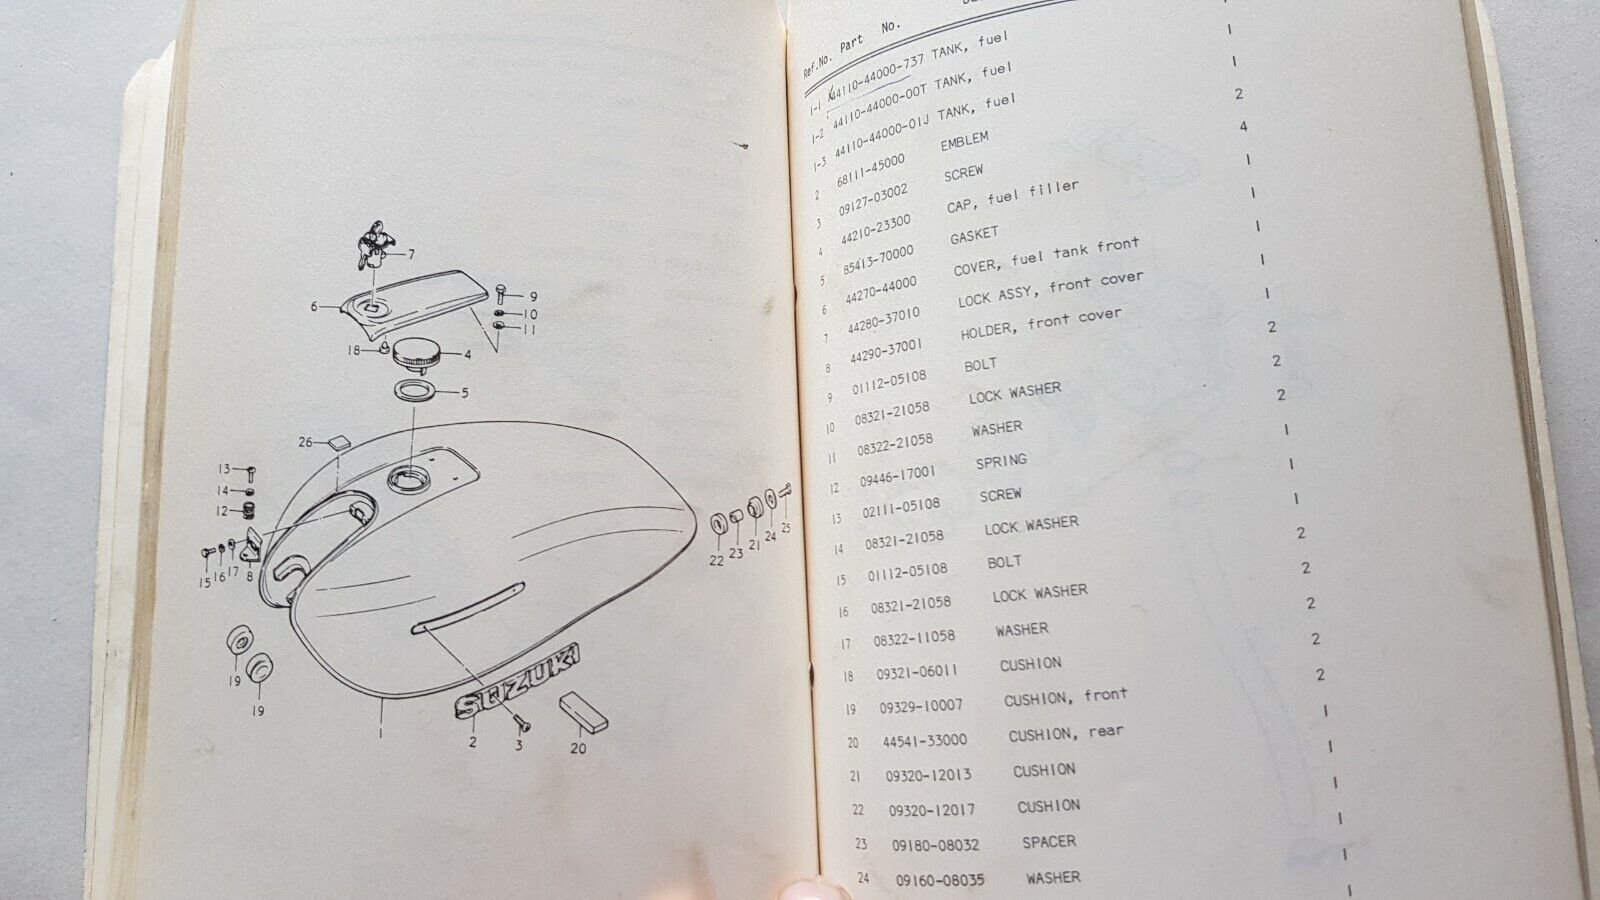 7
6
9
10
11
18
4
5
26
13
14
12
15 16 17 8
22 23 21 24 25
19
19
SUZUKI
1
2
3
20
Ref.No. Part No.
1-1 44110-44000-737 TANK, fuel 1
1-2 44110-44000-00T TANK, fuel 1
1-3 44110-44000-01J TANK, fuel 1
2 68111-45000 EMBLEM 2
3 09127-03002 SCREW 4
4 44210-23300 CAP, fuel filler 1
5 85413-70000 GASKET 1
6 44270-44000 COVER, fuel tank front 1
7 44280-37010 LOCK ASSY, front cover 1
8 44290-37001 HOLDER, front cover 1
9 01112-05108 BOLT 2
10 08321-21058 LOCK WASHER 2
11 08322-21058 WASHER 2
12 09446-17001 SPRING 1
13 02111-05108 SCREW 1
14 08321-21058 LOCK WASHER 1
15 01112-05108 BOLT 2
16 08321-21058 LOCK WASHER 2
17 08322-11058 WASHER 2
18 09321-06011 CUSHION 2
19 09329-10007 CUSHION, front 2
20 44541-33000 CUSHION, rear 1
21 09320-12013 CUSHION 1
22 09320-12017 CUSHION 1
23 09180-08032 SPACER 1
24 09160-08035 WASHER 1
1